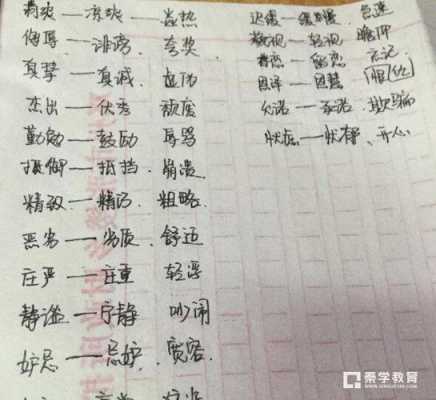 凉爽——炎热
侮辱——诽谤、夸奖
真挚——真诚、虚伪
杰出——优秀、颓废
勤勉——鼓励、辱骂
抵御——抵挡、崩溃
精致——精巧、粗略
恶劣——劣质、舒适
庄严——庄重、轻浮
静谧——宁静、吵闹
妒忌——忌妒、宽容
迟缓——缓慢、急速
藐视——轻视、瞻仰
眷恋——留恋、忘记
恩泽——恩惠、仇
允诺——承诺、欺骗
忧虑——开心
秦学教育